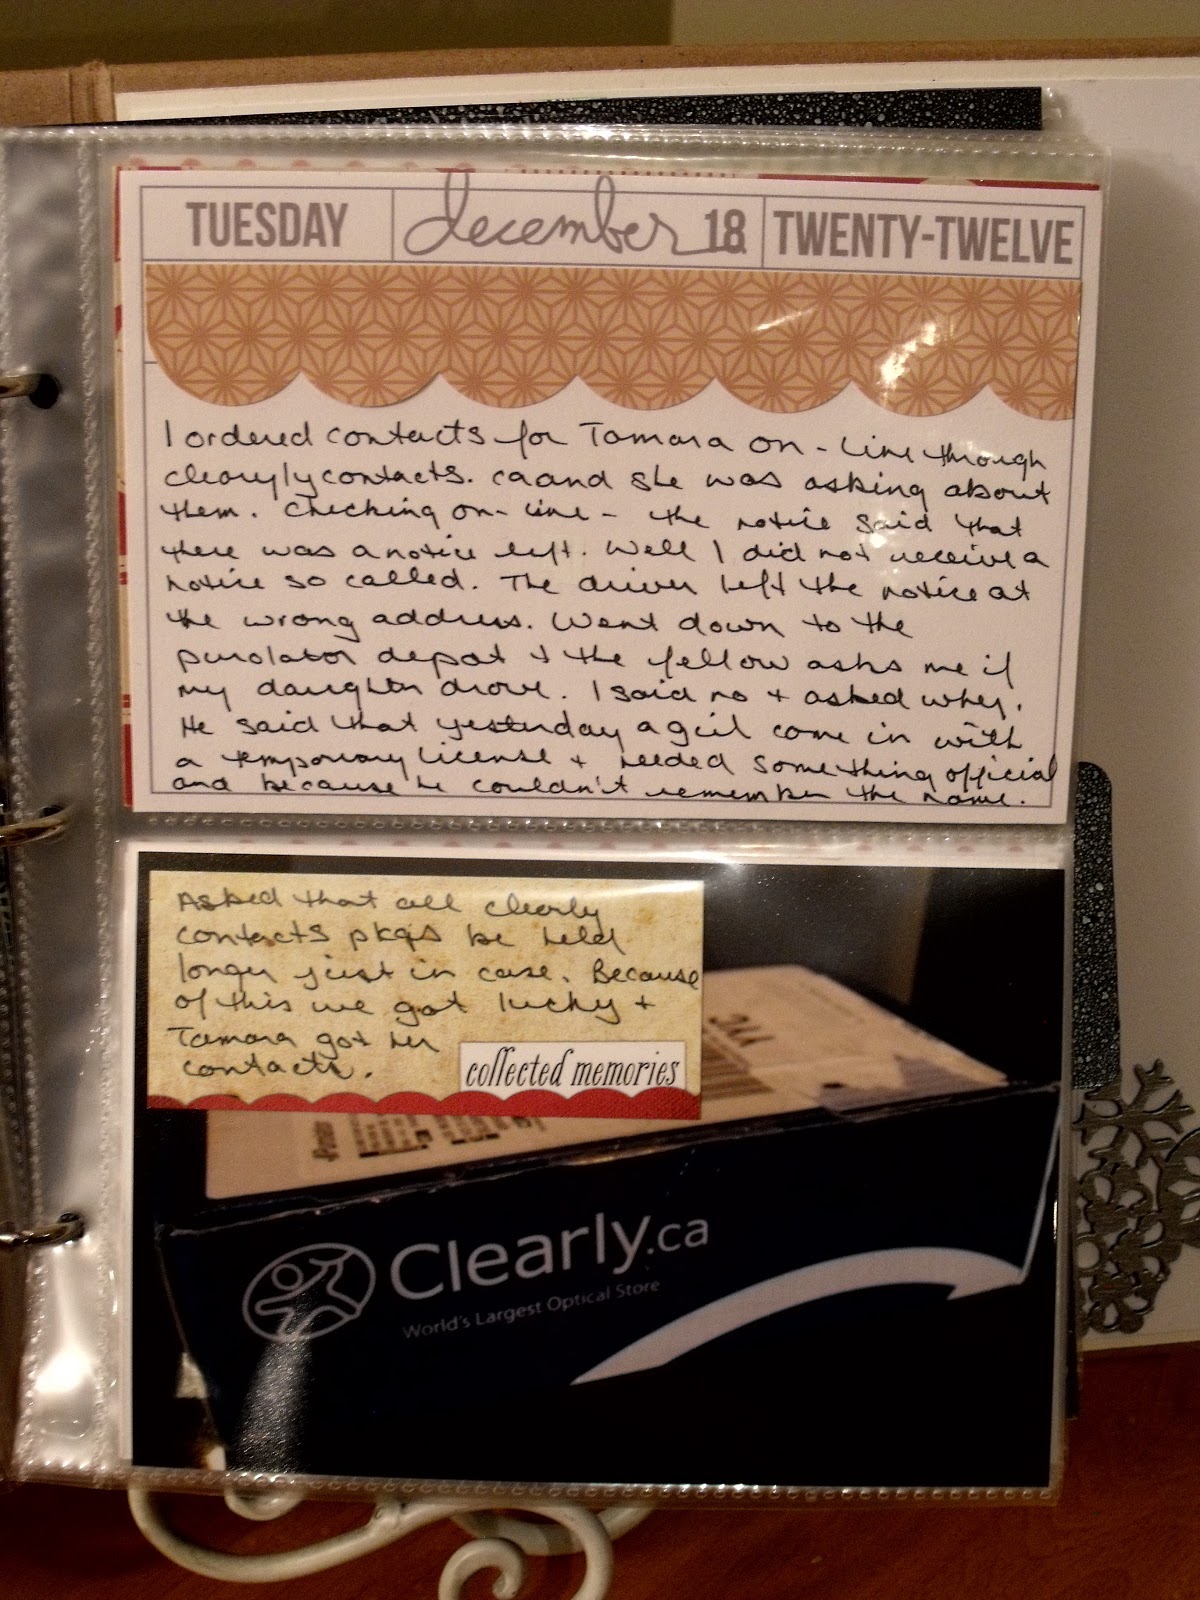 TUESDAY december 18 TWENTY-TWELVE
I ordered contacts for Tamara on-line through
clearylycontacts. ca and she was asking about
them. Checking on-line - the notice said that
there was a notice left. Well I did not receive a
notice so called. The driver left the notice at
the wrong address. Went down to the
purolator depot + the fellow asks me if
my daughter drove. I said no + asked whey.
He said that yesterday a girl come in with
a temporary license + needed something official
and because he couldn't remember the name.
Asked that all clearly
contacts pkgs be held
longer just in case. Because
of this we got lucky +
Tamara got her
contacts.
collected memories
Clearly.ca
World's Largest Optical Store